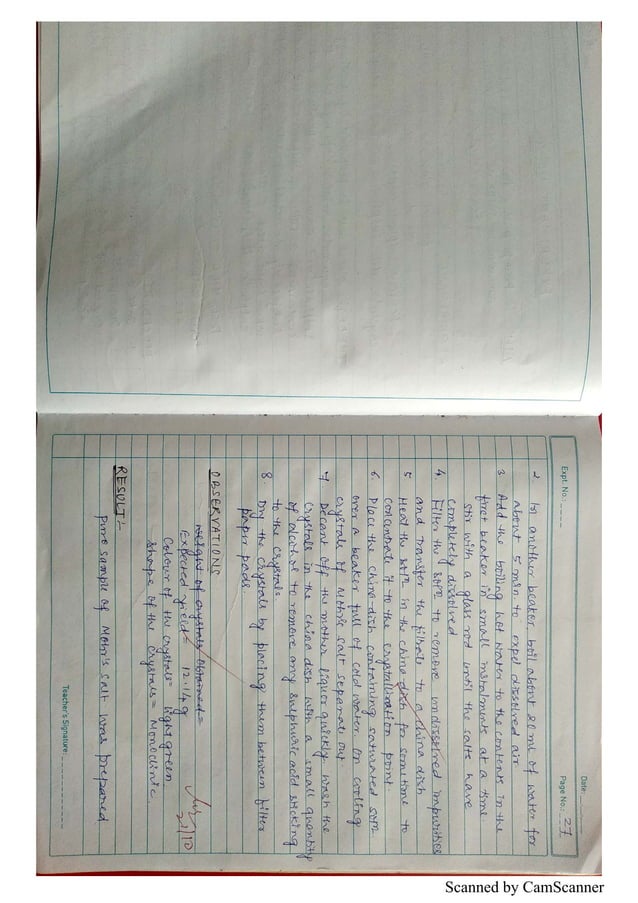 Expt. No.:
Date:
Page No.: 27
2. In another beaker boil about 20 ml of water for
about 5 min to expel dissolved air
3 Add the boiling hot water to the contents in the
first beaker in small instalments at a time
stir with a glass rod until the salts have
completely dissolved
4. Filter the soln to remove undissolved impurities
and transfer the filtrate to a china dish
5 Heat the soln in the china dish for sometime to
concentrate it to the crystallization point
6. Place the china dish containing saturated soln
over a beaker full of cold water. On cooling
crystals of Mohr's salt separate out.
7 Decant off the mother liquor quickly. Wash the
crystals in the china dish with a small quantity
of alcohol to remove any sulphuric acid sticking
to the crystals
8 Dry the crystals by placing them between filter
paper pads
OBSERVATIONS
weight of crystals obtained =
Expected yield = 12.14g
Colour of the crystals = light green
Shape of the Crystals = Monoclinic.
RESULT:-
Pure sample of Mohr's salt was prepared
Teacher's Signature:
Scanned by CamScanner